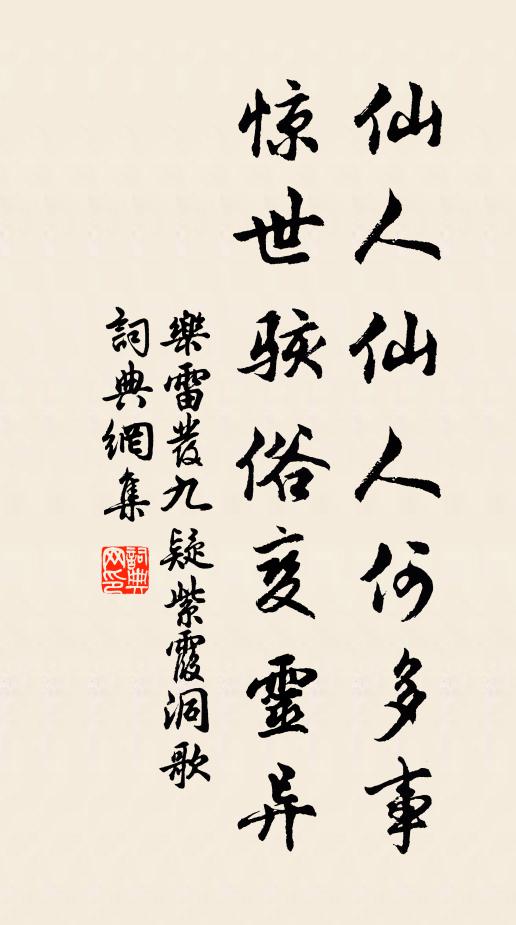 仙人仙人何多事
惊世骇俗变靈异
樂雷發九疑紫霞洞歌
詞典網集
詞典
网印